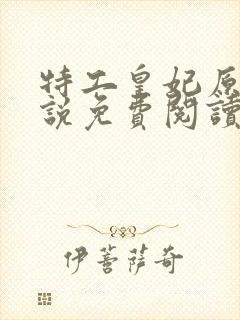 特工皇妃原
說免費閱讀
伊菩薩奇